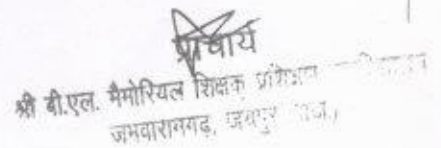 प्राचार्य
श्री बी.एल. मैमोरियल शिक्षक प्रशिक्षण
जमवारामगढ़, जयपुर